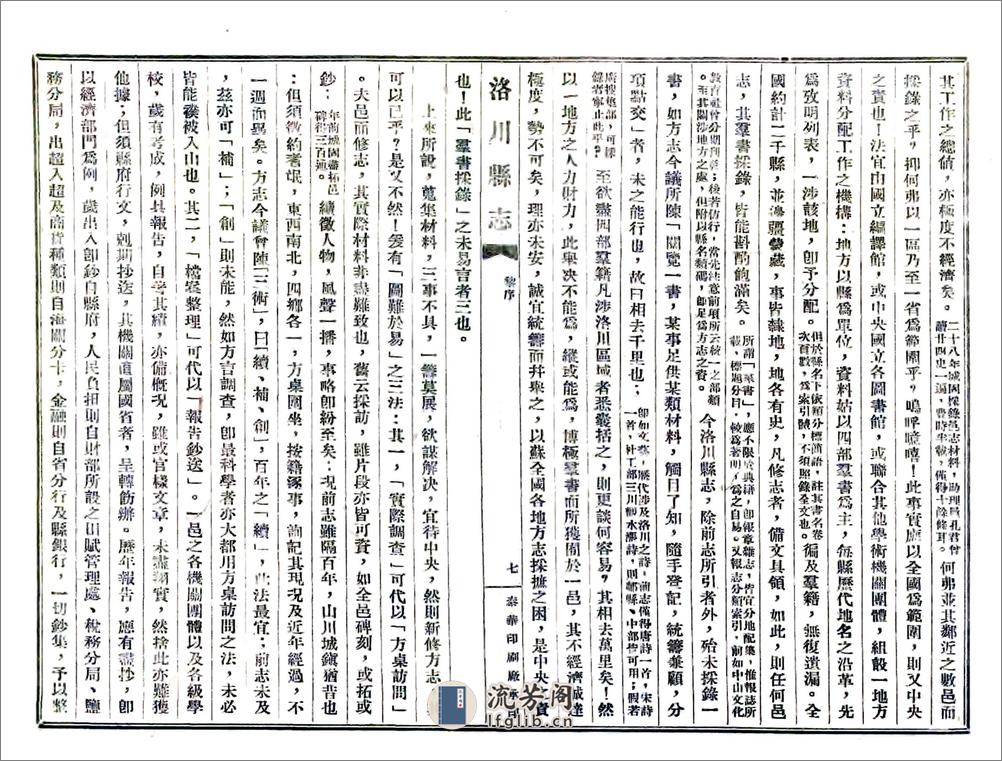 其工作之總値，亦極度不經濟矣。二十八年城固採錄邑志材料，助理員孔君曾
讀廿四史一過，費時半載，僅得十餘條耳。何弗並其鄰近之數邑而
採錄之乎？抑何弗以一區乃至一省爲範圍乎？嗚呼噫嘻！此事實應以全國爲範圍，則又中央
之責也！法宜由國立編譯館，或中央國立各圖書館，或聯合其他學術機關團體，組設一地方
資料分配工作之機構：地方以縣爲單位，資料姑以四部羣書爲主，每縣歷代地名之沿革，先
爲攷明列表，一涉該地，卽予分配。但於縣名下依類分標簡語，註其書名卷
次頁數，爲索引體，不須照錄全文也。徧及羣籍，無復遺漏。全
國約計二千縣，並海疆藝藏，事皆隸地，地各有史，凡修志者，備文具領，如此，則任何邑
志，其羣書採錄，皆能斟酌飽滿矣。所謂「羣書」，應不限於典籍，卽報章雜志，皆宜分地配集，惟報誌所
載，標題分目，較爲著明，爲之自易。又報志分類索引，前如中山文化
敎育社曾分期刊布；後著仿行，當先注意前項所云統一之部類
。至其關涉地方之處，但附以縣名類碼，卽足爲方志之資。今洛川縣志，除前志所引者外，殆未採錄一
書，如方志今議所陳「閱覽一書，某事足供某類材料，觸目了知，隨手登記，統籌兼顧，分
項點交」者，未之能行也，故曰相去千里也；卽如文藝，歷代涉及洛川之詩，前志僅得唐詩一首，宋詩
一首，杜工部三川觀水漲詩，則鄜縣、中部皆可用；假若
廣搜集部，可採
錄者寧止此乎？至欲盡四部羣籍凡涉洛川區域者悉囊括之，則更談何容易？其相去萬里矣！然
以一地方之人力財力，此與決不能爲，縱或能爲，博極羣書而所獲囿於一邑，其不經濟咸達
極度，勢不可矣，理亦未安，誠宜統籌而幷舉之，以蘇全國各地方志採摭之困，是中央之責
也！此「羣書採錄」之未易言者三也。
洛川縣志
黎序
七
泰華印刷廠承印
上來所說，蒐集材料，三事不具，一籌莫展，欲謀解決，宜待中央，然則新修方志，
可以已乎？是又不然！爰有「圖難於易」之三法：其一，「實際調查」可代以「方桌訪問」
。夫邑而修志，其實際材料非盡難致也，舊云採訪，雖片段亦皆可資，如全邑碑刻，或拓或
鈔；年前城固盡拓邑
碑得三百通。續徵人物，風聲一播，事略卽紛至矣；況前志雖隔百年，山川城鎭猶昔也
；但須徵約耆氓，東西南北，四鄉各一，方桌圍坐，按籍逐事，詢記其現況及近年經過，不
一週而畢矣。方志今議曾陳「三術」，曰續、補、創，百年之「續」，此法最宜；前志未及
，茲亦可「補」；「創」則未能，然如方言調查，卽最科學者亦大都用方桌訪問之法，未必
皆能襆被入山也。其二，「檔案整理」可代以「報告鈔送」。一邑之各機關團體以及各級學
校，歲有考成，例具報告，自爭其績，亦備槪況，雖或官樣文章，未盡翔實，然捨此亦難獲
他據；但須縣府行文，剋期抄送，其機關直屬國省者，呈轉飭辦。歷年報告，應有盡抄，卽
以經濟部門爲例，歲出入卽鈔自縣府，人民負担則自財部所設之田賦管理處、稅務分局、鹽
務分局，出超入超及商貨種類則自海關分卡，金融則自省分行及縣銀行，一切鈔集，予以整
流芳阁
lfglib.cn